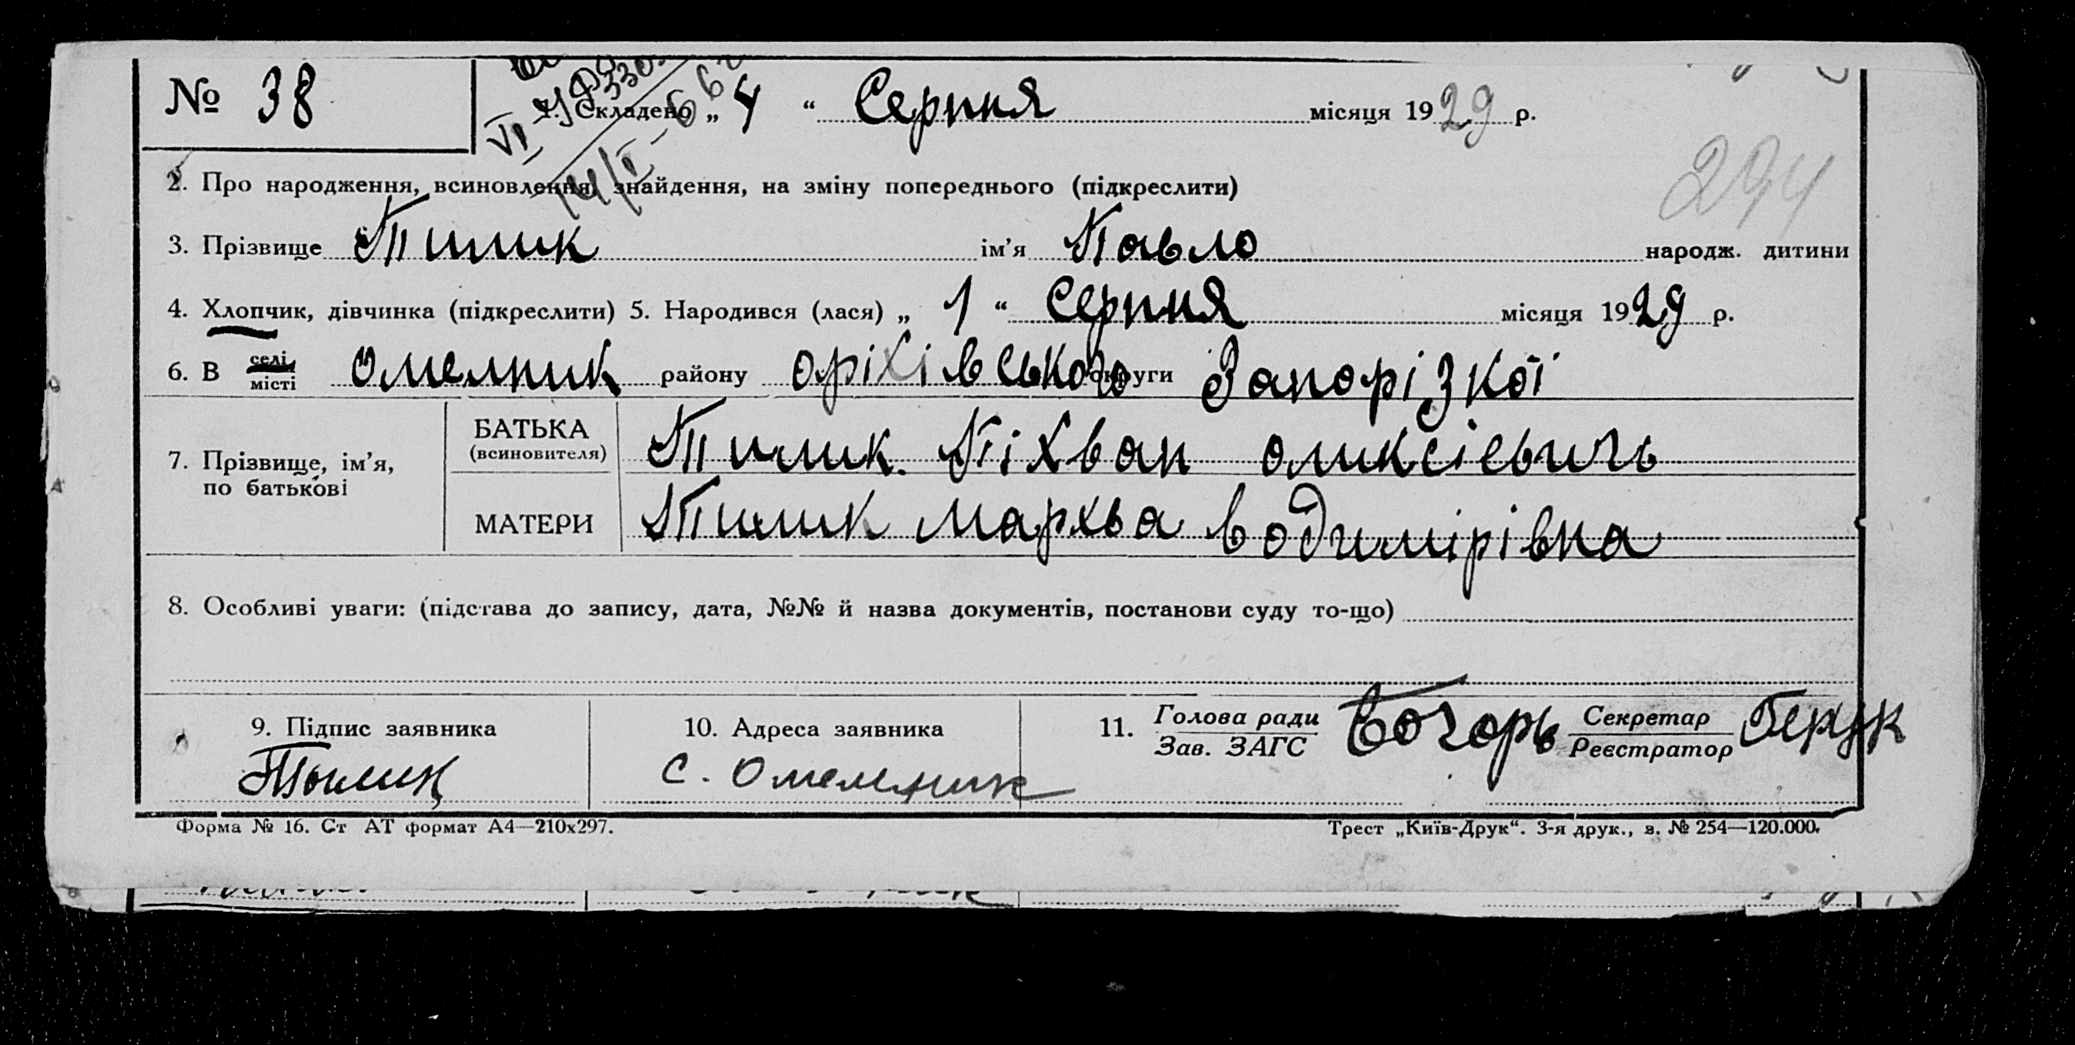 № 38
1. Складено „ 4 “ Серпня місяця 1929 р.
294
2. Про народження, всиновлення, знайдення, на зміну попереднього (підкреслити)
3. Прізвище Тилик ім’я Павло народж. дитини
4. Хлопчик, дівчинка (підкреслити) 5. Народився (лася) „ 1 “ Серпня місяця 1929 р.
6. В селі місті Омелник району оріхівського округи Запорізкої
7. Прізвище, ім’я, по батькові
БАТЬКА (всиновителя) Тилик Тіхван оликсієвичь
МАТЕРИ Тилик Мархва водимірівна
8. Особливі уваги: (підстава до запису, дата, №№ й назва документів, постанови суду то-що)
9. Підпис заявника
10. Адреса заявника
11. Голова ради Зав. ЗАГС
Секретар Реєстратор
с. Омелник
Форма № 16. Ст АТ формат А4—210х297.
Трест „Київ-Друк“. 3-я друк., з. № 254—120.000.